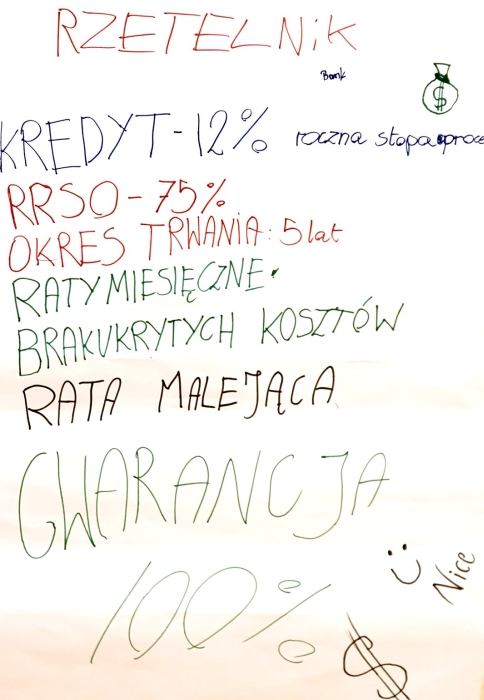 RZETELNiK
Bank
$
KREDYT - 12% roczna stopa oproce
RRSO - 75%
OKRES TRWANiA: 5 lat
RATY MIESIĘCZNE
BRAK UKRYTYCH KOSZTÓW
RATA MALEJĄCA
GWARANCJA
100%
Nice
$